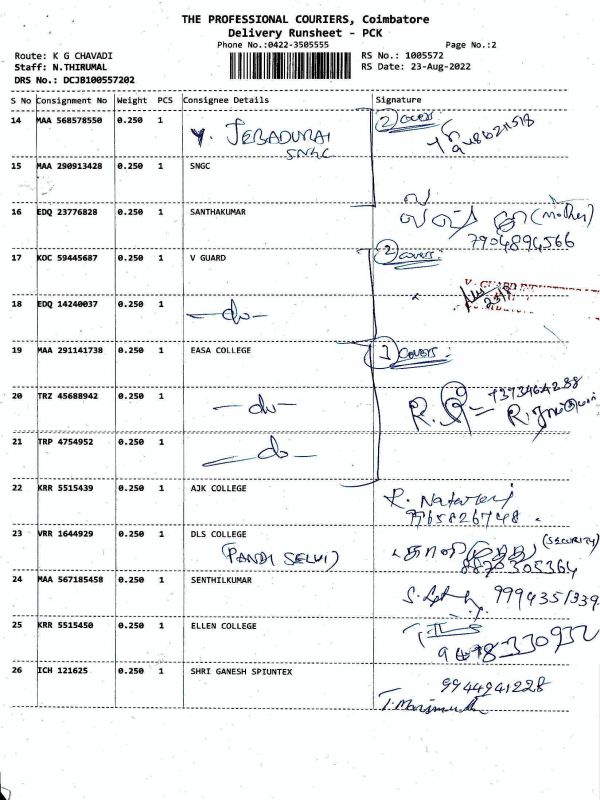 THE PROFESSIONAL COURIERS, Coimbatore
Delivery Runsheet - PCK
Phone No.:0422-3505555 Page No.:2
Route: K G CHAVADI RS No.: 1005572
Staff: N.THIRUMAL RS Date: 23-Aug-2022
DRS No.: DCJB100557202
S No Consignment No Weight PCS Consignee Details Signature
14 MAA 568578550 0.250 1 Y. JEBADURAI SNGC 2 covers
15 MAA 290913428 0.250 1 SNGC
16 EDQ 23776828 0.250 1 SANTHAKUMAR (mother)
7904894566
17 KOC 59445687 0.250 1 V GUARD 2 covers
18 EDQ 14240037 0.250 1 -do-
19 MAA 291141738 0.250 1 EASA COLLEGE 3 covers
20 TRZ 45688942 0.250 1 -do- 7373464288
21 TRP 4754952 0.250 1 -do-
22 KRR 5515439 0.250 1 AJK COLLEGE
23 VRR 1644929 0.250 1 DLS COLLEGE (SECURITY)
(PANDI SELVI) 8870305364
24 MAA 567185458 0.250 1 SENTHILKUMAR
25 KRR 5515450 0.250 1 ELLEN COLLEGE
26 ICH 121625 0.250 1 SHRI GANESH SPIUNTEX 9944941228